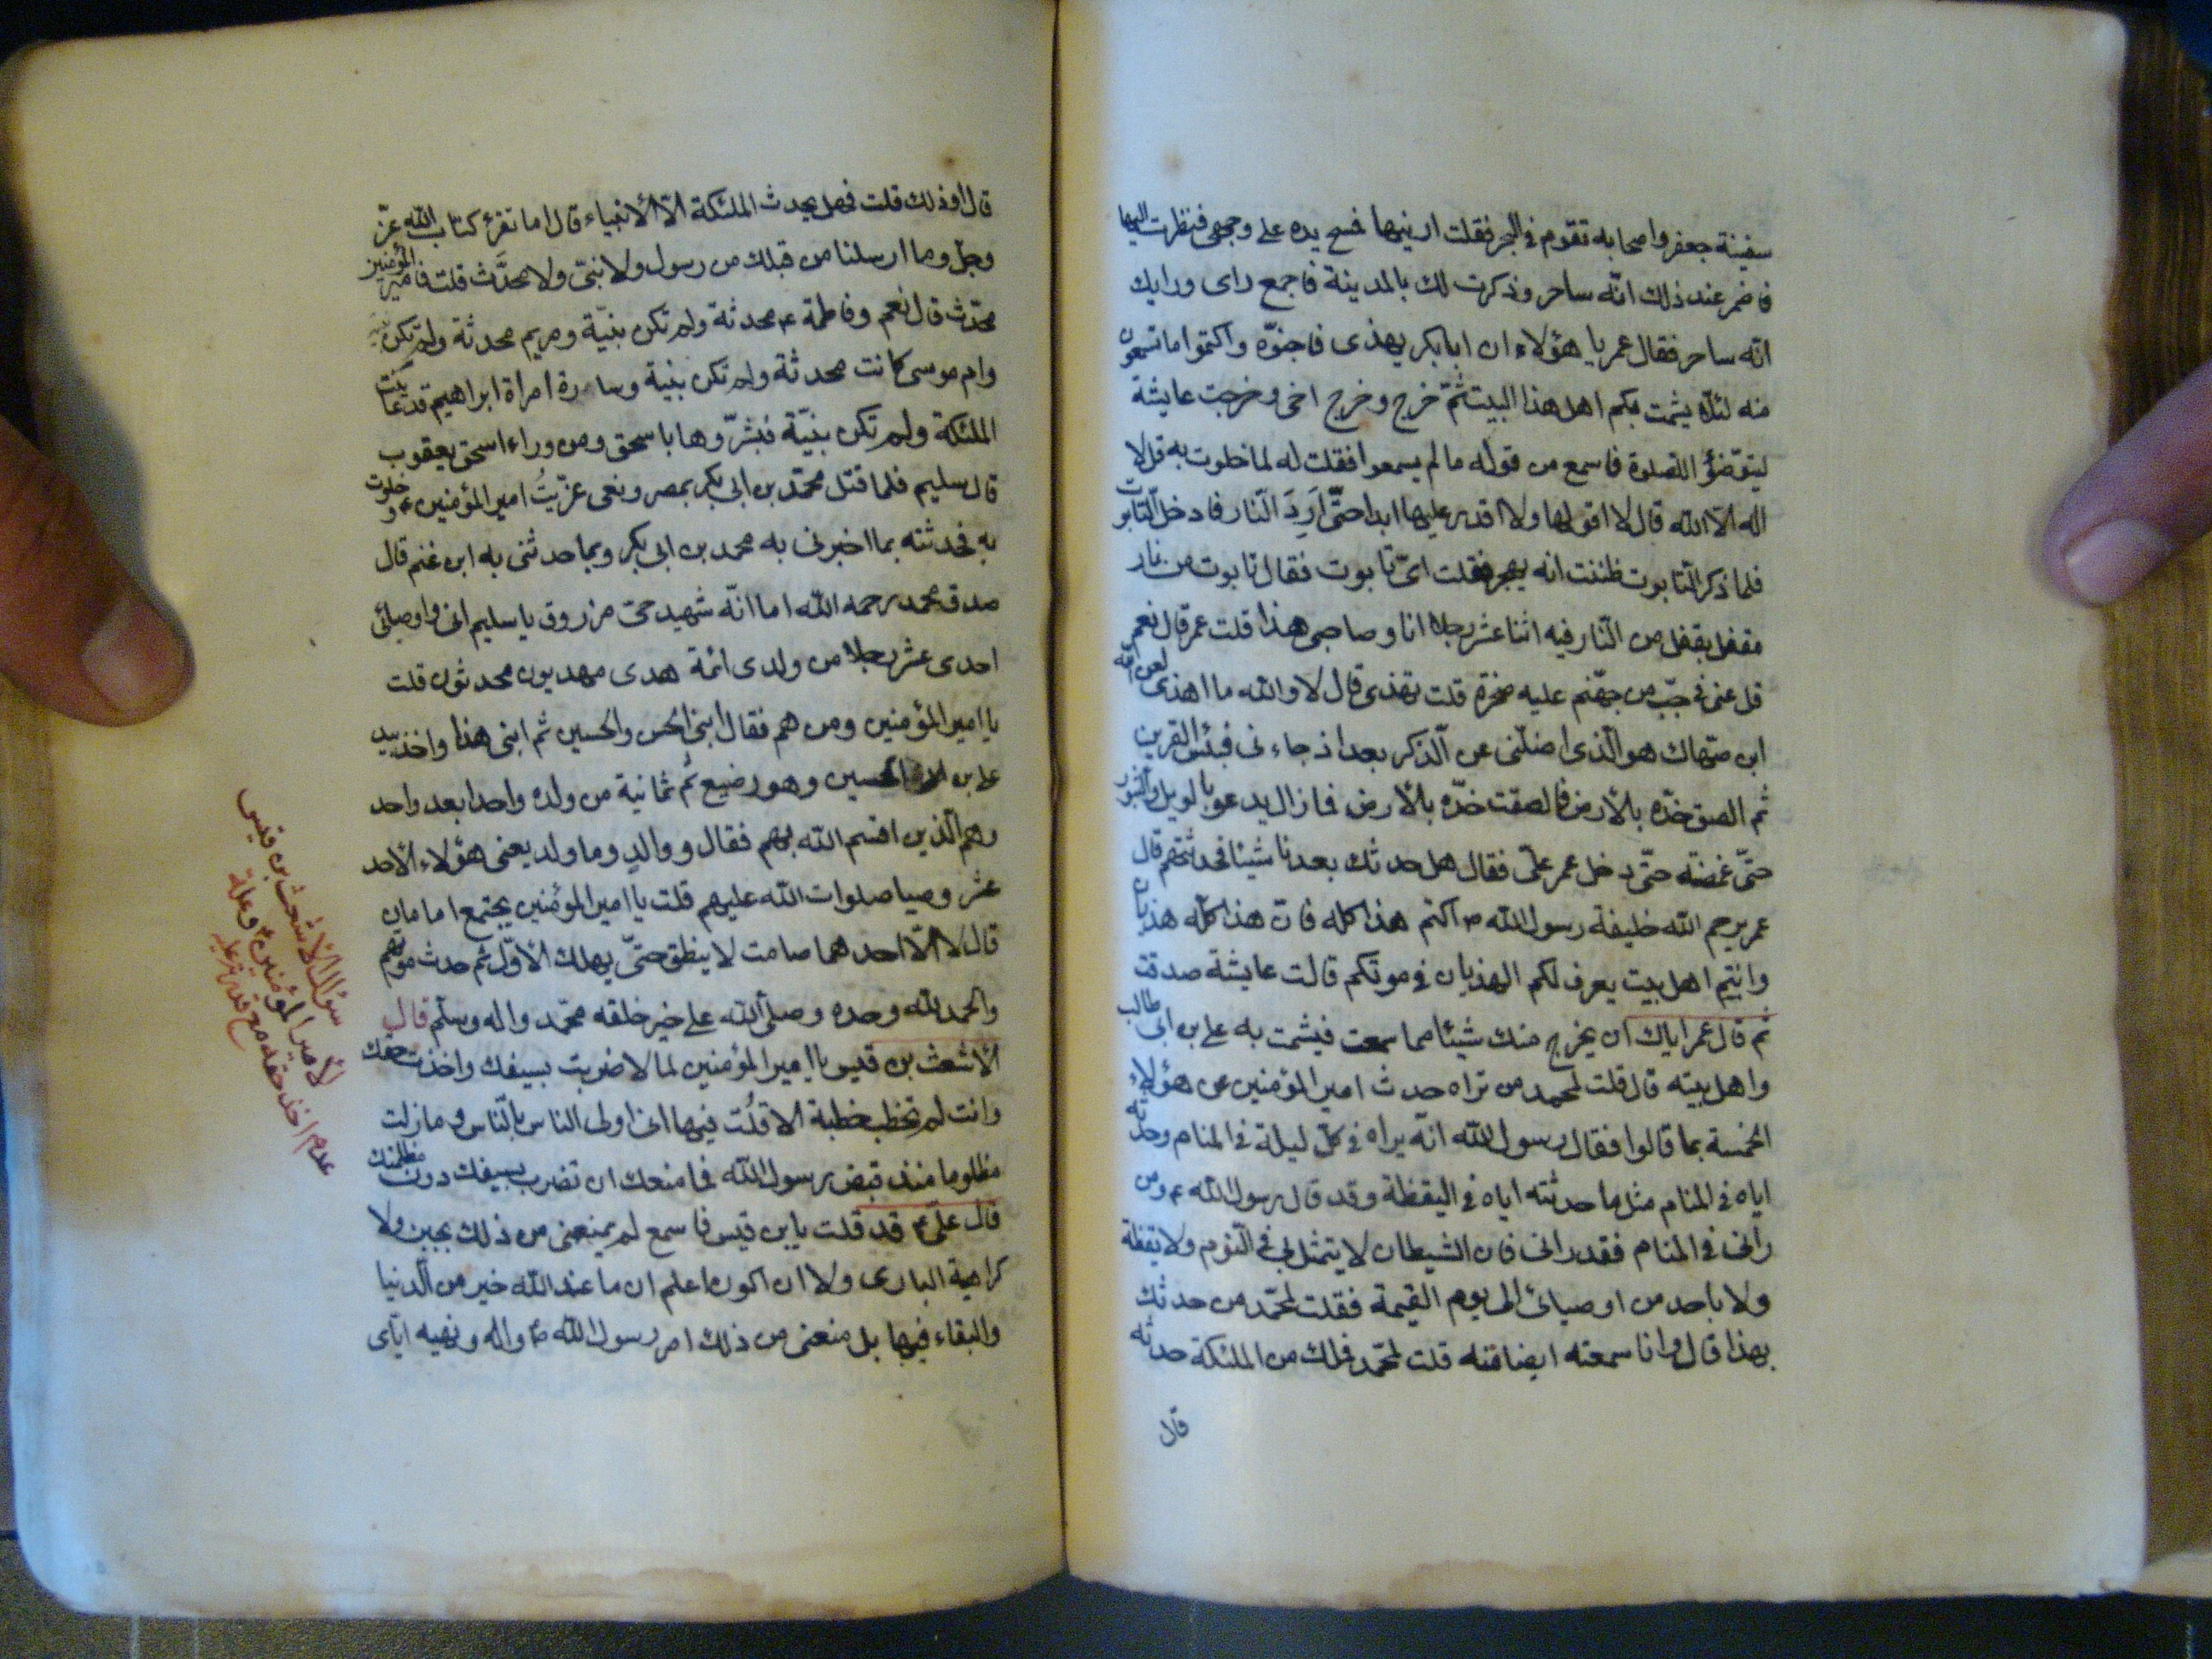 سفينة جعفر واصحابه تقوم في البحر فقلت ارنيها فمسح يده على وجهى فنظرت اليها
فاضمر عند ذلك انّه ساحر وذكرت لك بالمدينة فاجمع راى ورايك
انّه ساحر فقال عمر يا هؤلاء ان ابابكر يهذى فاجنوّه واكتموا ما تسمعون
منه لئلّا يشمت بكم اهل هذا البيت ثمّ خرج وخرج اخى وخرجت عايشة
ليتوضّؤا للصلوة فاسمع من قوله ما لم يسمعوا فقلت له لما خلوت به قل لا
اله الّا الله قال لا اقولها ولا اقدر عليها ابدا حتّى اَرِدَ النّار فادخل التّابوت
فلما ذكر التّابوت ظننت انه يهجر فقلت اىّ تابوت فقال تابوت من نار
مقفل بقفل من النّار فيه اثنا عشر رجلا انا وصاحبى هذا قلت عمر قال نعم
قل عنى في جبّ من جهّنم عليه صخرة قلت تهذى قال لا والله ما اهذى لعن الله
ابن صهّاك هو الّذى اضلّنى عن الّذكر بعد اذ جاءنى فبئس القرين
ثم الصق خدّه بالأرض فالصقت خدّه بالأرض فمازال يدعو بالويل والثبور
حتّى غمضته حتّى دخل عمر علىّ فقال هل حدثك بعدنا شيئا فحدثتهم قال
عمر يرحم الله خليفة رسول الله ص اكتم هذا كله فان هذا كلّه هذيان
وانتم اهل بيت يعرف لكم الهذيان في موتكم قالت عايشة صدقت
ثم قال عمر اياك ان يخرج منك شيئا مما سمعت فيشمت به على بن ابى طالب
واهل بيته قال قلت لمحمد من تراه حدث امير المؤمنين عن هؤلاء
الخمسة بما قالوا فقال رسول الله انّه يراه في كلّ ليلة في المنام وحدثه
اياه في المنام مثل ما حدثته اياه في اليقظة وقد قال رسول الله ص ومن
رأنى في المنام فقد رانى فان الشيطان لا يتمثل بى في النّوم ولا يقظة
ولا باحد من اوصيائى الى يوم القيمة فقلت لمحمّد من حدثك
بهذا قال وانا سمعته ايضا منه قلت لمحمّد فملك من الملئكة حدثه
قال
قال او ذلك قلت فهل يحدث الملئكة الّا الأنبياء قال اما تقرء كتاب الله عزّ
وجلّ وما ارسلنا من قبلك من رسول ولا نبىّ ولا محدَّث قلت فامير المؤمنين
محدّث قال نعم وفاطمة ع محدثة ولم تكن بنيّة ومريم محدثة ولم تكن
وام موسى كانت محدثة ولم تكن بنية وسارة امراة ابراهيم قد عاينت
الملئكة ولم تكن بنيّة فبشّروها باسحق ومن وراء اسحق يعقوب
قال سليم فلما قتل محمّد بن ابى بكر بمصر ونعى عزّيتُ امير المؤمنين ع وخلوت
به فحدثته بما اخبرنى به محمد بن ابى بكر وبما حدثنى به ابن غنم قال
صدق محمد رحمه الله اما انّه شهيد حىّ مرزوق يا سليم انى واوصيائى
احدى عشر رجلا من ولدى ائمة هدى مهديون محدثون قلت
يا امير المؤمنين ومن هم فقال ابنى الحسن والحسين ثم ابنى هذا واخذ بيد
على بن الحسين وهو رضيع ثم ثمانية من ولده واحدا بعد واحد
وهم الّذين اقسم الله بهم فقال ووالدٍ وما ولد يعنى هؤلاء الأحد
عشر وصيا صلوات الله عليهم قلت يا امير المؤمنين يجتمع امامان
قال لا الّا احدهما صامت لا ينطق حتّى يهلك الأوّل ثم حدث موتهم
والحمد لله وحده وصلى الله على خير خلقه محمّد واله وسلّم قال
الأشعث بن قيس يا امير المؤمنين لما لا ضربت بسيفك واخذت حقك
وانت لم تخطب خطبة الا قلُت فيها انى اولى الناس بالنّاس وما زلت
مظلوما منذ قبض رسول الله فما منعك ان تضرب بسيفك دون مظلمتك
قال علىّ ع قد قلت يابن قيس فاسمع لم يمنعنى من ذلك بجبن ولا
كراهية البارى ولا ان اكون اعلم ان ما عند الله خير من الّدنيا
والبقاء فيها بل منعنى من ذلك امر رسول الله ص واله ونهيه ايّاى
سؤال الأشعث بن قيس
لأمير المؤمنين ع وعلة
عدم اخذ حقه مع قدرته عليه